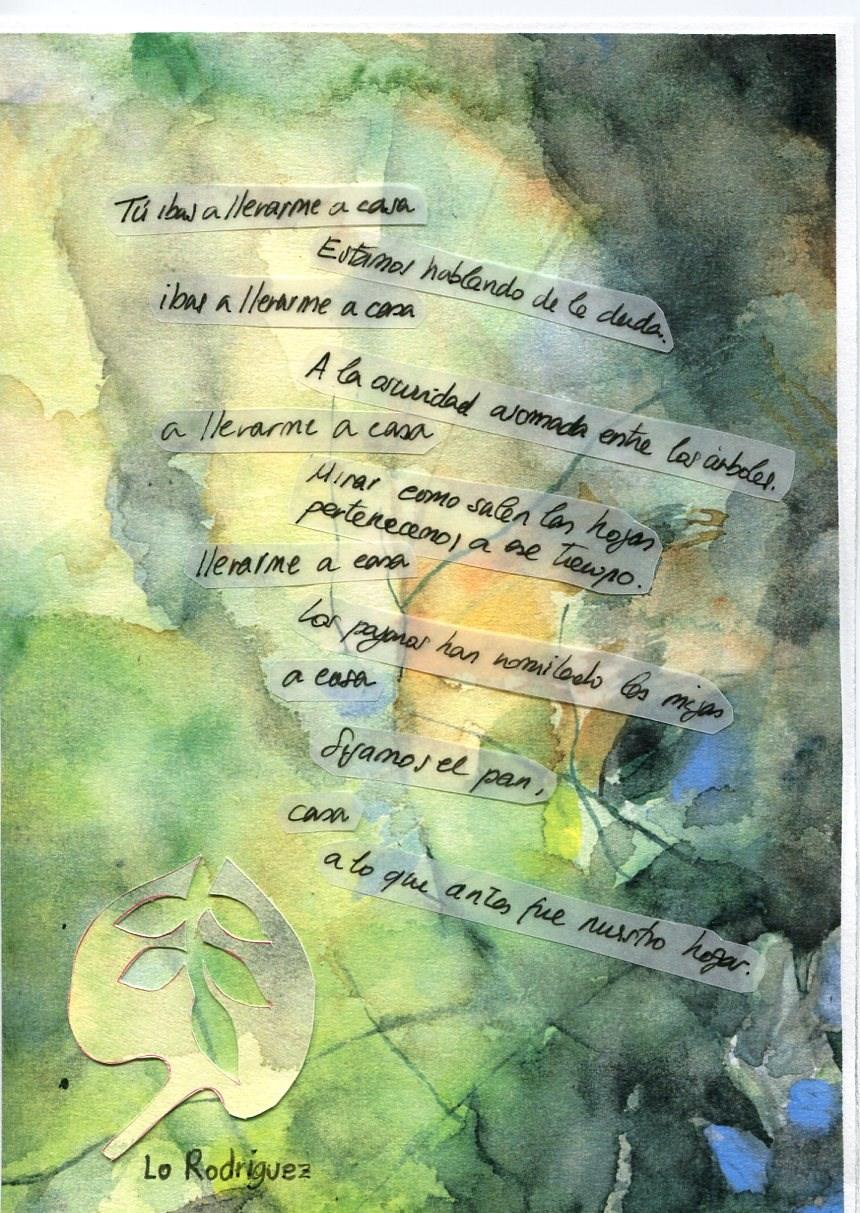 Tú ibas a llevarme a casa
Estamos hablando de la duda.
ibas a llevarme a casa
A la oscuridad asomada entre los árboles.
a llevarme a casa
Mirar como salen las hojas
pertenecenos a ese tiempo.
llevarme a casa
Los pajaros han las migas
a casa
Sigamos el pan,
casa
a lo que antes fue nuestro hogar.
Lo Rodríguez